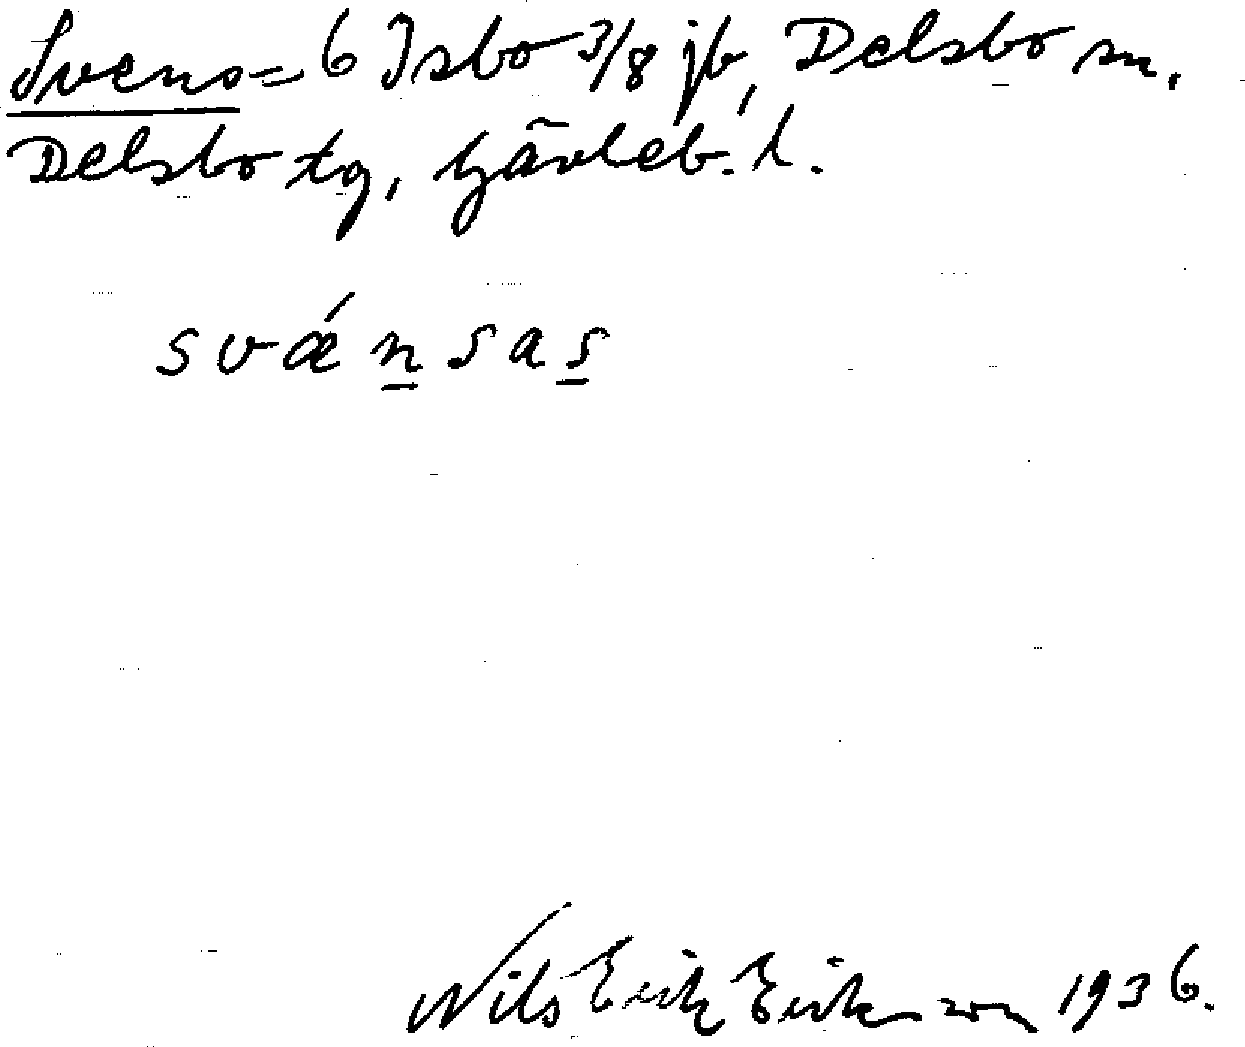 Svens= 6 Isbo 3/8 jb, Delsbo sn,
Delsbo tg, Gävleb. l.
svǽn̲sas̲
Nils Erik Eriksson 1936.